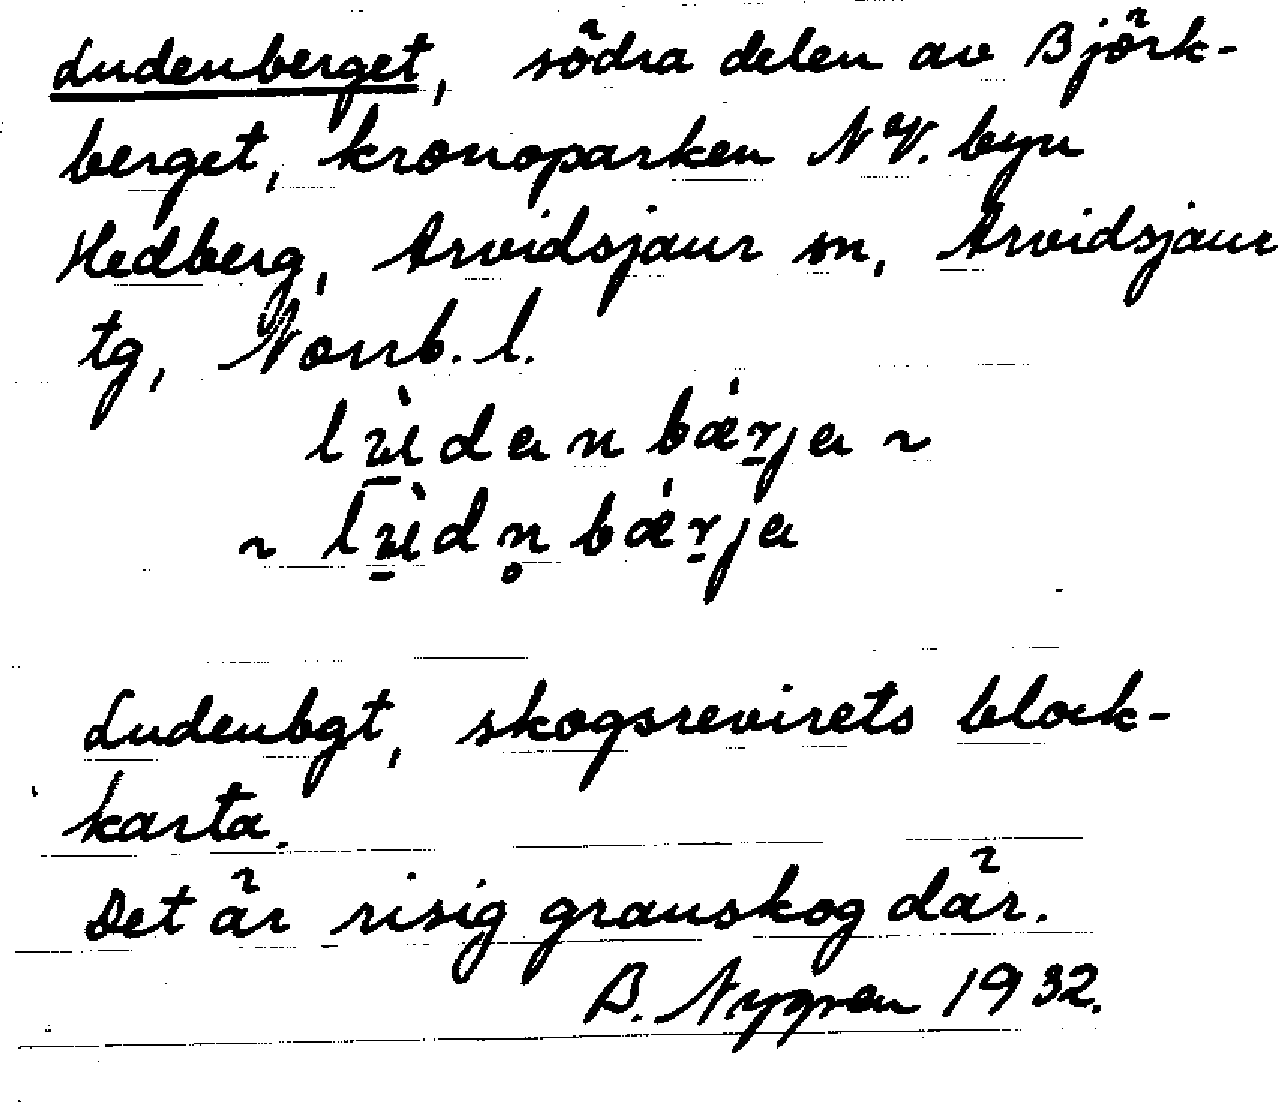 Ludenberget, södra delen av Björk-
berget, kronoparken NV. byn
Hedberg, Arvidsjaur sn, Arvidsjaur
tg, Norrb. l.
lù̲dan bǽr̲ja ~
~ lù̲dn̥ bǽr̲ja
Ludenbgt, skogsrevirets block-
karta.
Det är risig granskog där.
B. Nygren 1932.